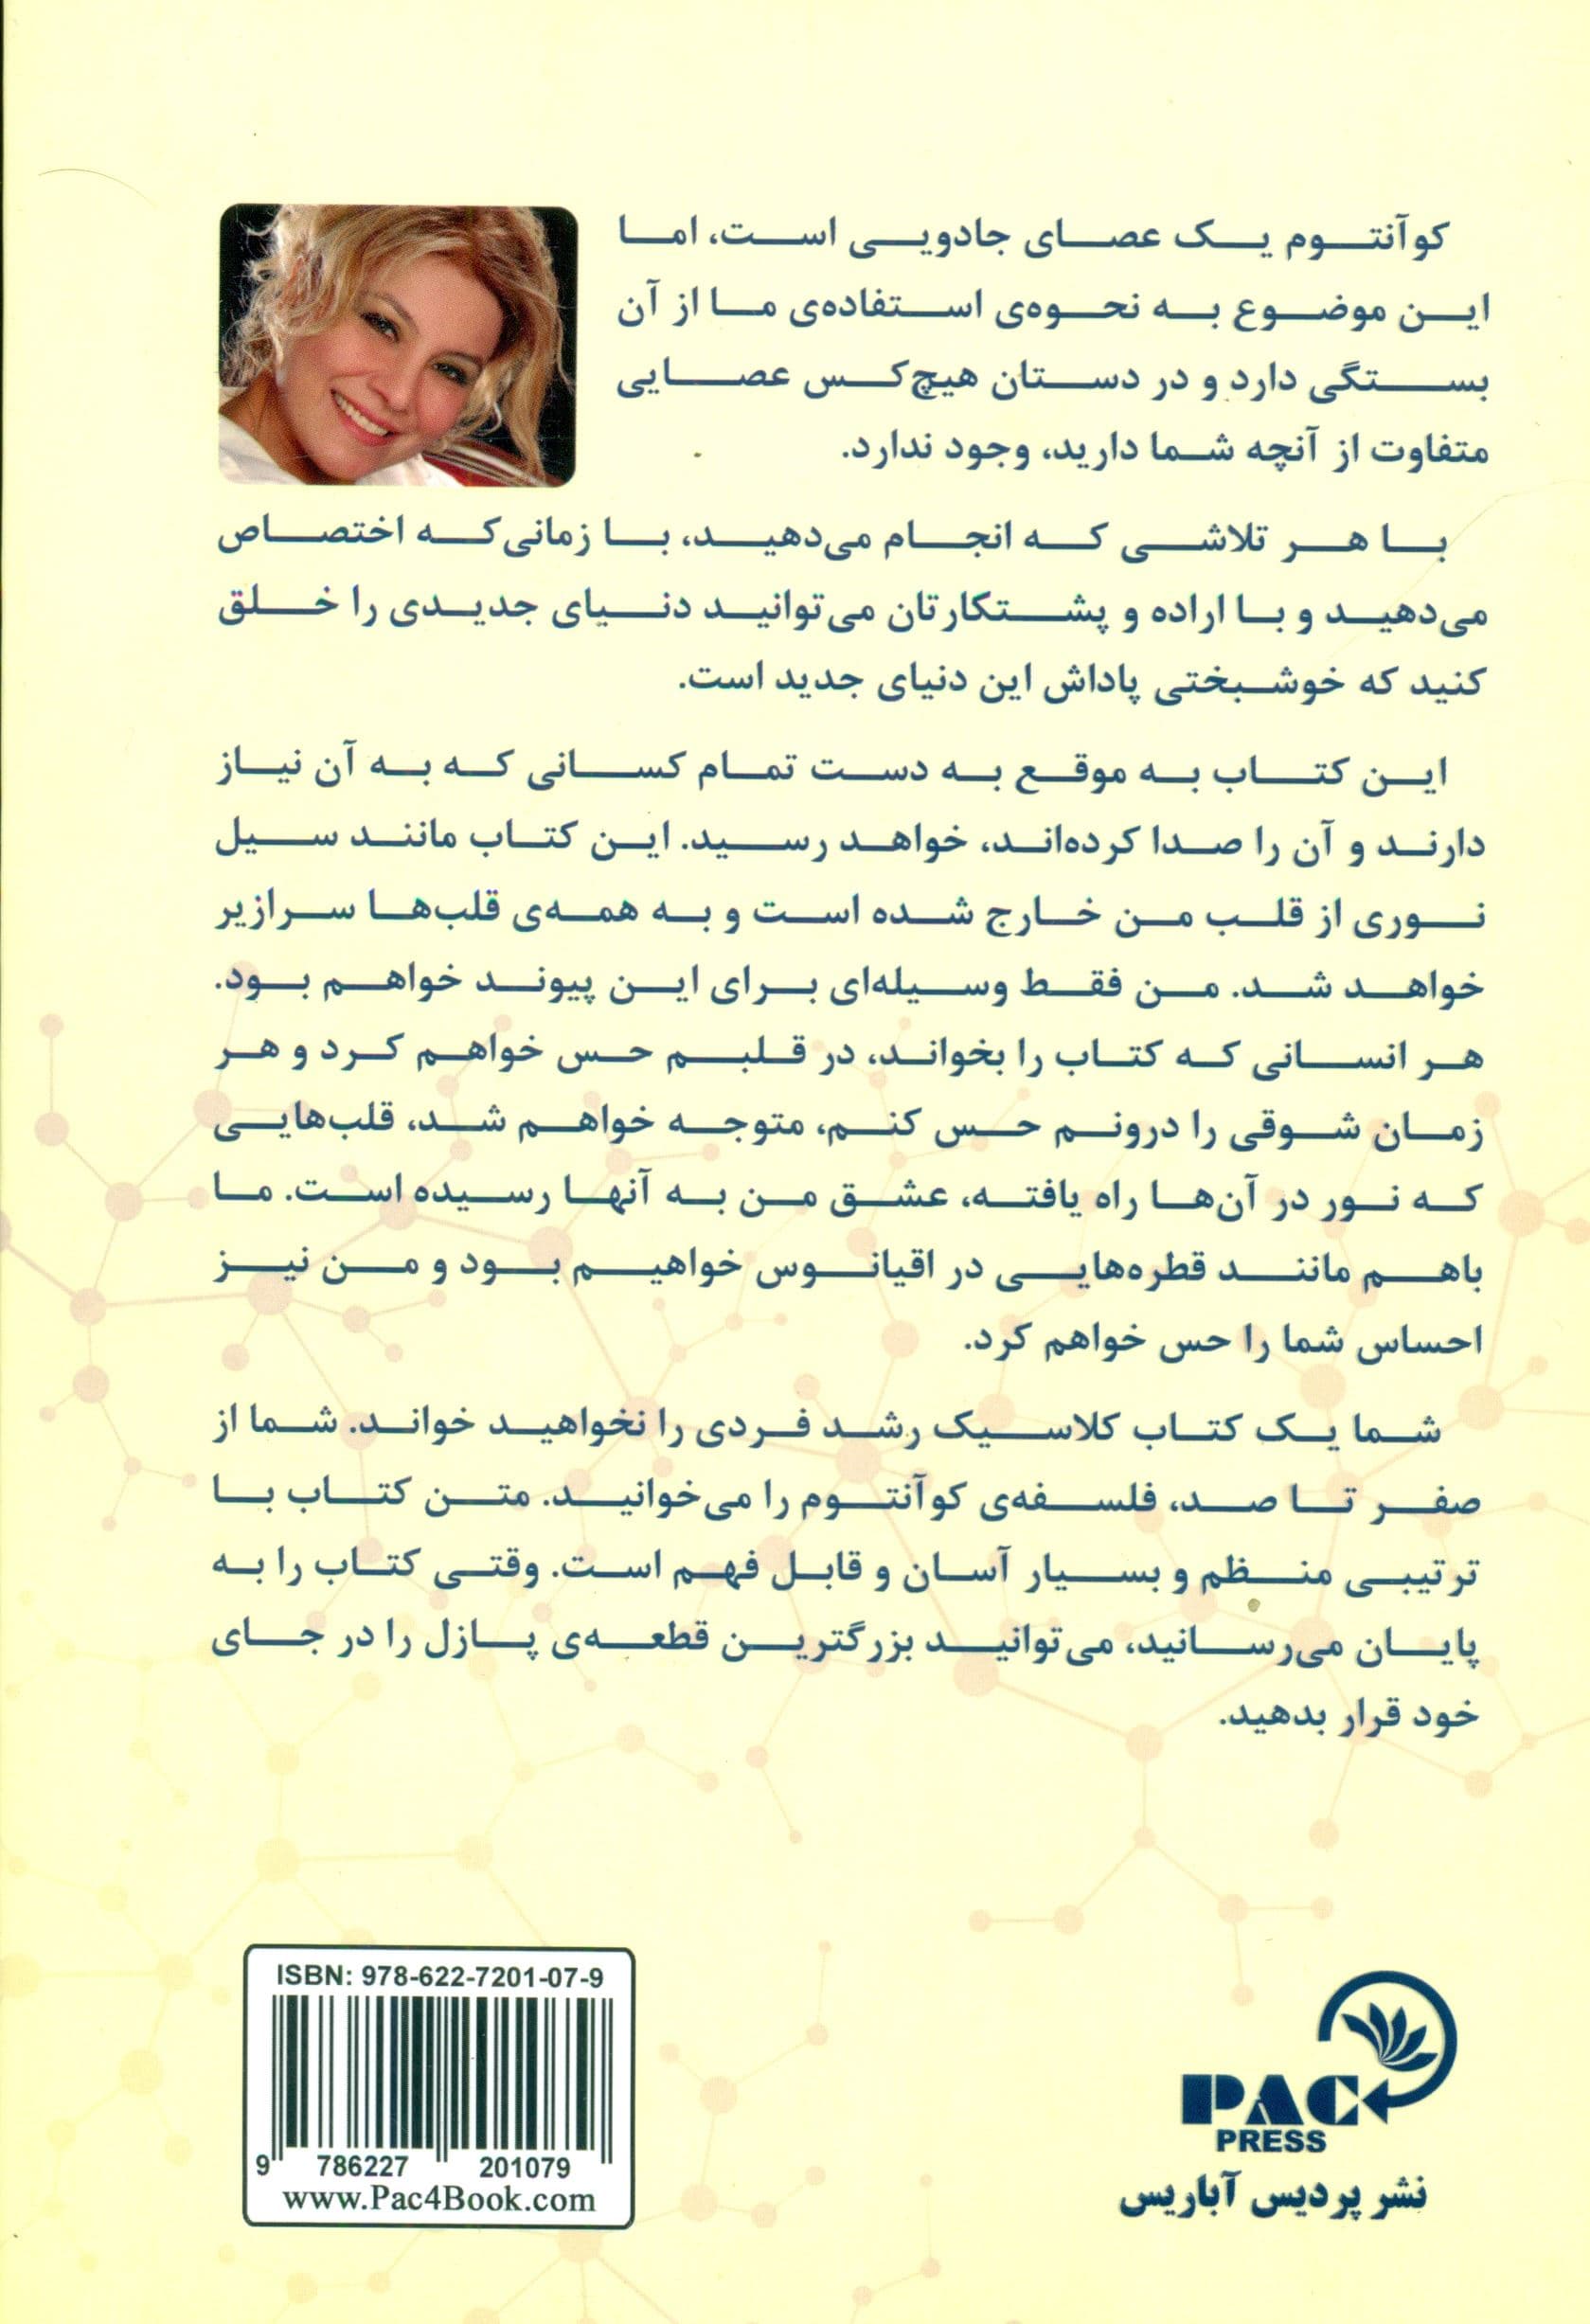 کوآنتوم یک عصای جادویی است، اما
این موضوع به نحوه‌ی استفاده‌ی ما از آن
بستگی دارد و در دستان هیچ‌کس عصایی
متفاوت از آنچه شما دارید، وجود ندارد.
با هر تلاشی که انجام می‌دهید، با زمانی‌که اختصاص
می‌دهید و با اراده و پشتکارتان می‌توانید دنیای جدیدی را خلق
کنید که خوشبختی پاداش این دنیای جدید است.
این کتاب به موقع به دست تمام کسانی که به آن نیاز
دارند و آن را صدا کرده‌اند، خواهد رسید. این کتاب مانند سیل
نوری از قلب من خارج شده است و به همه‌ی قلب‌ها سرازیر
خواهد شد. من فقط وسیله‌ای برای این پیوند خواهم بود.
هر انسانی که کتاب را بخواند، در قلبم حس خواهم کرد و هر
زمان شوقی را درونم حس کنم، متوجه خواهم شد، قلب‌هایی
که نور در آن‌ها راه یافته، عشق من به آنها رسیده است. ما
باهم مانند قطره‌هایی در اقیانوس خواهیم بود و من نیز
احساس شما را حس خواهم کرد.
شما یک کتاب کلاسیک رشد فردی را نخواهید خواند. شما از
صفر تا صد، فلسفه‌ی کوآنتوم را می‌خوانید. متن کتاب با
ترتیبی منظم و بسیار آسان و قابل فهم است. وقتی کتاب را به
پایان می‌رسانید، می‌توانید بزرگترین قطعه‌ی پازل را در جای
خود قرار بدهید.
ISBN: 978-622-7201-07-9
9 786227 201079
www.Pac4Book.com
PAC
PRESS
نشر پردیس آباریس